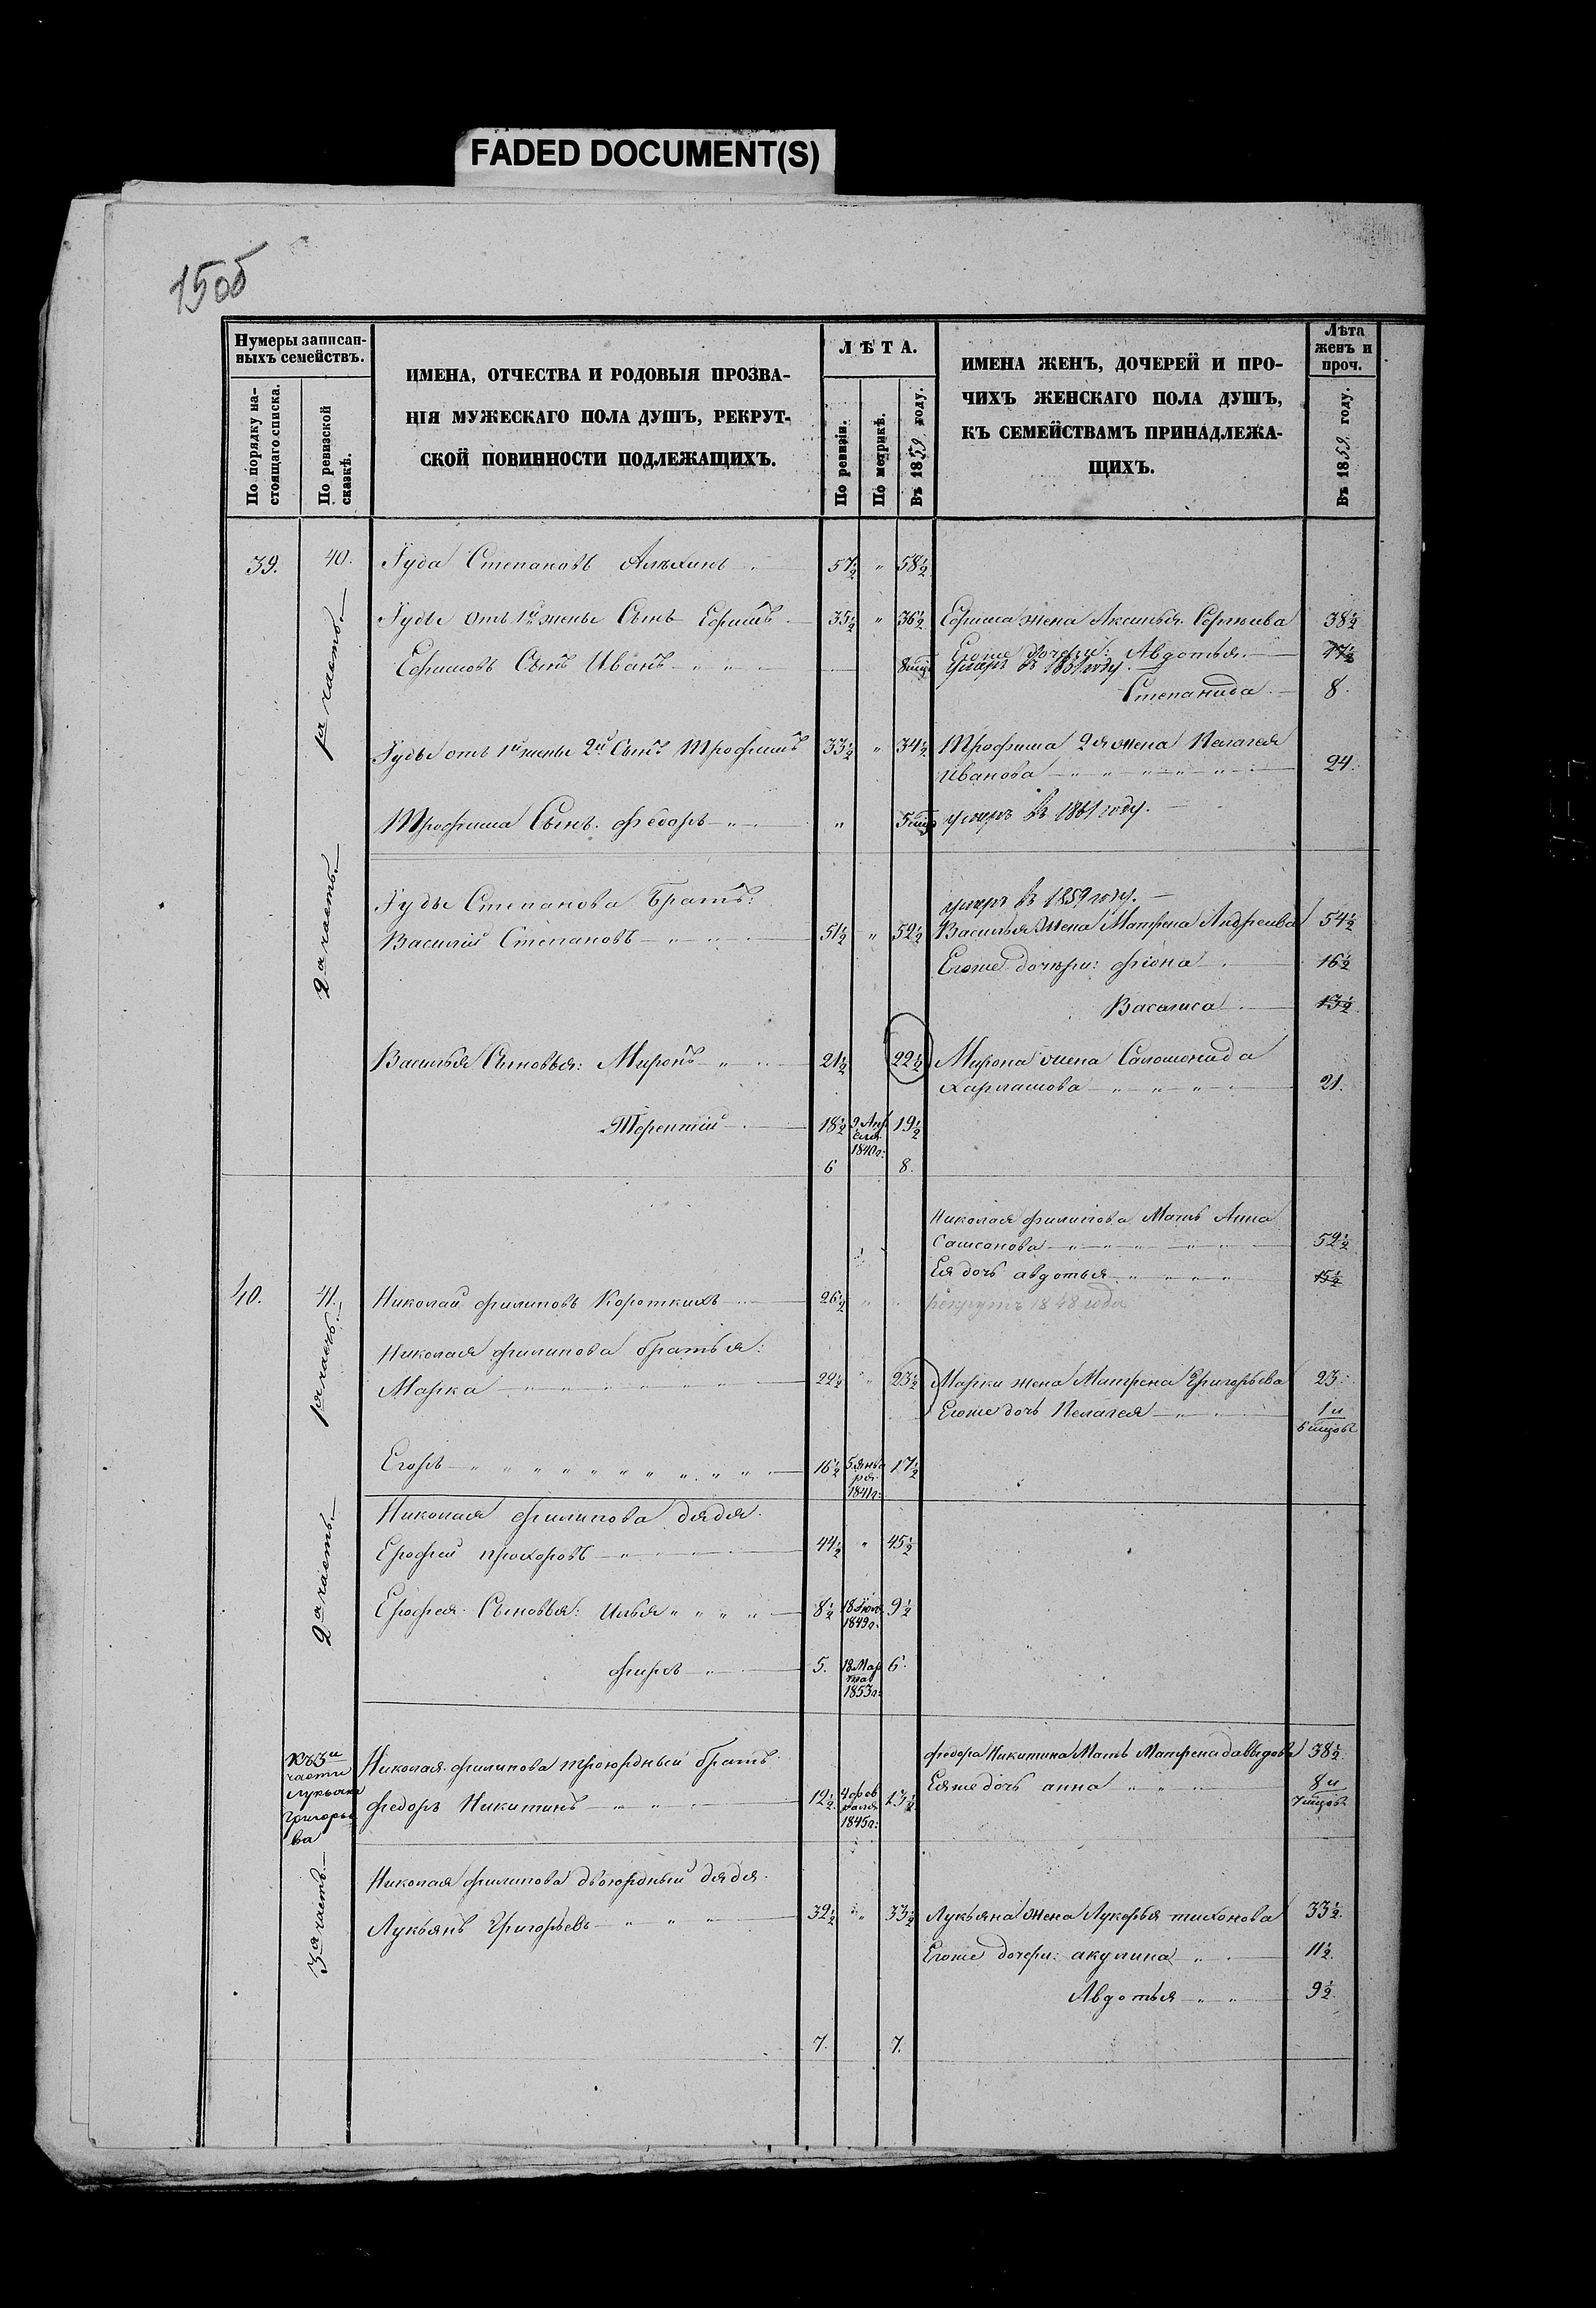 FADED DOCUMENT(S)
15об
Нумеры записан-
ныхъ семействъ.
По порядку на-
стоящаго списка.
По ревизской
сказкѣ.
ИМЕНА, ОТЧЕСТВА И РОДОВЫЯ ПРОЗВА-
НІЯ МУЖЕСКАГО ПОЛА ДУШЪ, РЕКРУТ-
СКОЙ ПОВИННОСТИ ПОДЛЕЖАЩИХЪ.
ЛѢТА.
По ревизіи.
По метрикѣ.
Въ 1859 году.
ИМЕНА ЖЕНЪ, ДОЧЕРЕЙ И ПРО-
ЧИХЪ ЖЕНСКАГО ПОЛА ДУШЪ,
КЪ СЕМЕЙСТВАМЪ ПРИНАДЛЕЖА-
ЩИХЪ.
Лѣта
женъ и
проч.
Въ 1859 году.
39. 40. Іуда Степановъ Алехинъ 57½ " 58½
1я часть.
Іуды отъ 1й жены Сынъ Ефимъ 35½ " 36½ Ефима жена Аксинья Сергѣева 38½
Егоже дочери: Авдотья 17½
Ефимовъ Сынъ Иванъ " " 8 умеръ в 1861 году.
Степанида 8.
Іуды отъ 1й жены 2й Сынъ Трофимъ 33½ " 34½ Трофима 2я жена Пелагея
Иванова " " " " " 24.
Трофима Сынъ Федоръ " " 5 умеръ в 1861 году.
2я часть.
Іуды Степанова Братъ:
умеръ в 1859 году.
Василий Степановъ " " 51½ " 52½ Василья Жена Матрена Андреева 54½
Егоже дочери: Фіона 16½
Васалиса 13½
Василья Сыновья: Миронъ " " 21½ 22½ Мирона жена Саломонида
Харламова " " " " 21.
Терентий 18½ 9 Апр
еля
1840г: 19½
6 8.
Николая Филипова Мать Анна
Самсонова " " " " " 52½
Ея дочь авдотья " " " " 15½
40. 41. Николай Филиповъ Короткихъ 26½ " " рекрутъ 1848 года
1я часть.
Николая Филипова братья:
Марка " " " " " " 22½ " 23½ Марки жена Матрена Григорьева 23.
Егоже дочь Пелагея " " 1 и
6 мцов
Егоръ " " " " " " " " " " " 16½ 5 янва
ря
1841г: 17½
2я часть.
Николая Филипова дядя.
Ерофей Прохоровъ " " " 44½ " 45½
Ерофея Сыновья: Илья " " " " 8½ 18 Іюля
1849г. 9½
Фирсъ " 5. 18 Мар
та
1853г: 6.
Къ 3й
части
Лукьяна
Григорье
ва
Николая Филипова троюродный братъ
Федоръ Никитинъ " " " 12½ 4 фев
раля
1845г: 13½
Федора Никитина Мать Матрена давыдова 38½
Еяже дочь анна " " " 8 и
7 мцов
3я часть.
Николая Филипова двоюродный дядя
Лукьянъ Григорьевъ " " " 32½ " 33½ Лукьяна Жена Лукерья тихонова 33½
Егоже дочери: акулина " 11½
Авдотья " " 9½
7. 7.